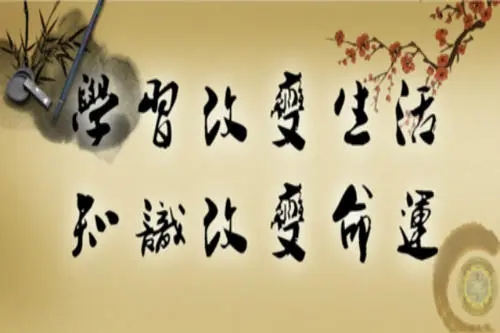 學習改變生活
知識改變命運